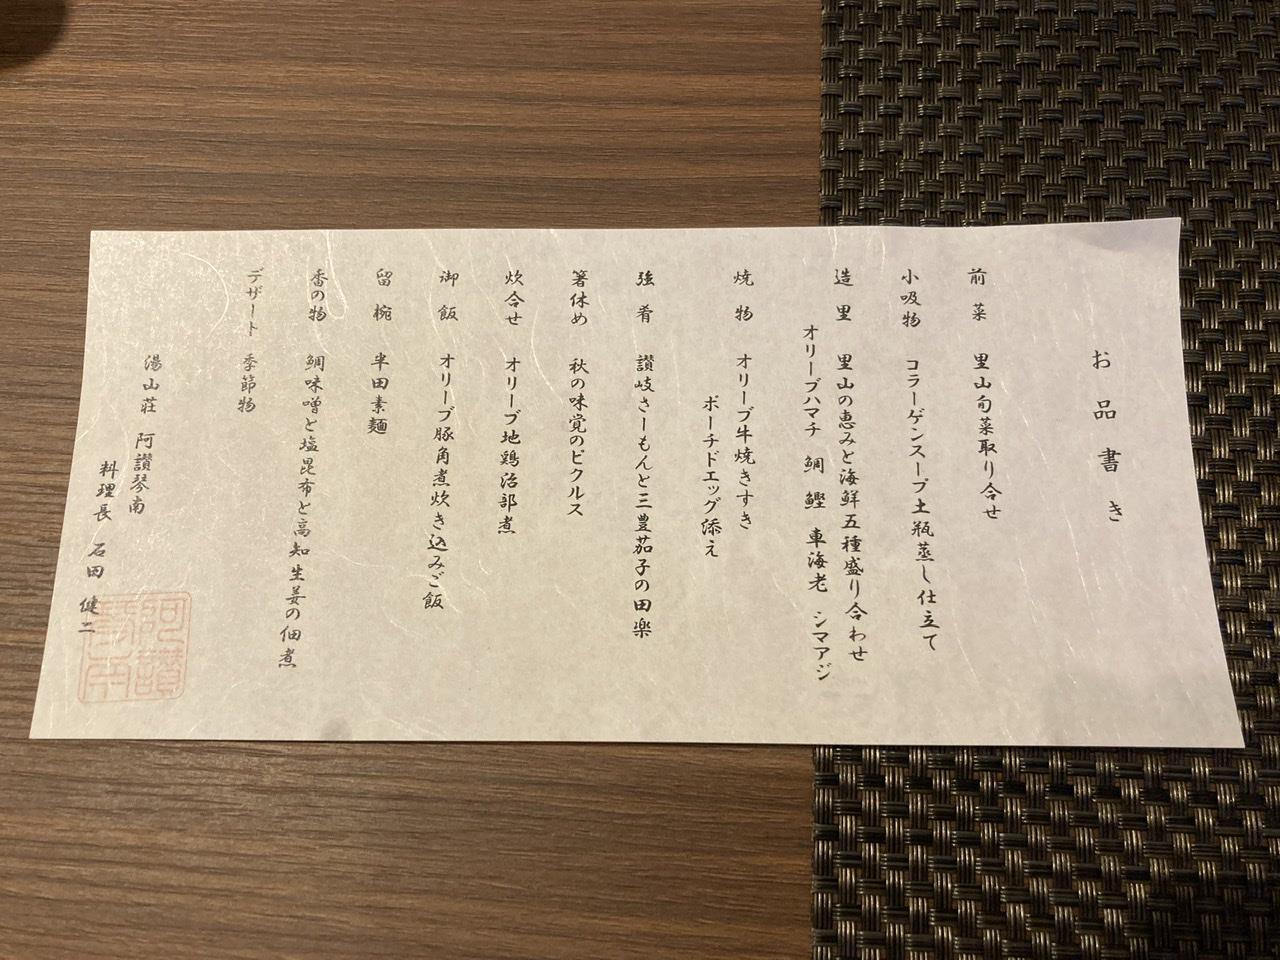 お品書き
前菜 里山旬菜取り合せ
小吸物 コラーゲンスープ土瓶蒸し仕立て
造里 里山の恵みと海鮮五種盛り合わせ
オリーブハマチ 鯛 鰹 車海老 シマアジ
焼物 オリーブ牛焼きすき
ポーチドエッグ添え
強肴 讃岐さーもんと三豊茄子の田楽
箸休め 秋の味覚のピクルス
炊合せ オリーブ地鶏治部煮
御飯 オリーブ豚角煮炊き込みご飯
留椀 半田素麺
香の物 鯛味噌と塩昆布と高知生姜の佃煮
デザート 季節物
湯山荘 阿讃琴南
料理長 石田 健二
阿讃琴南